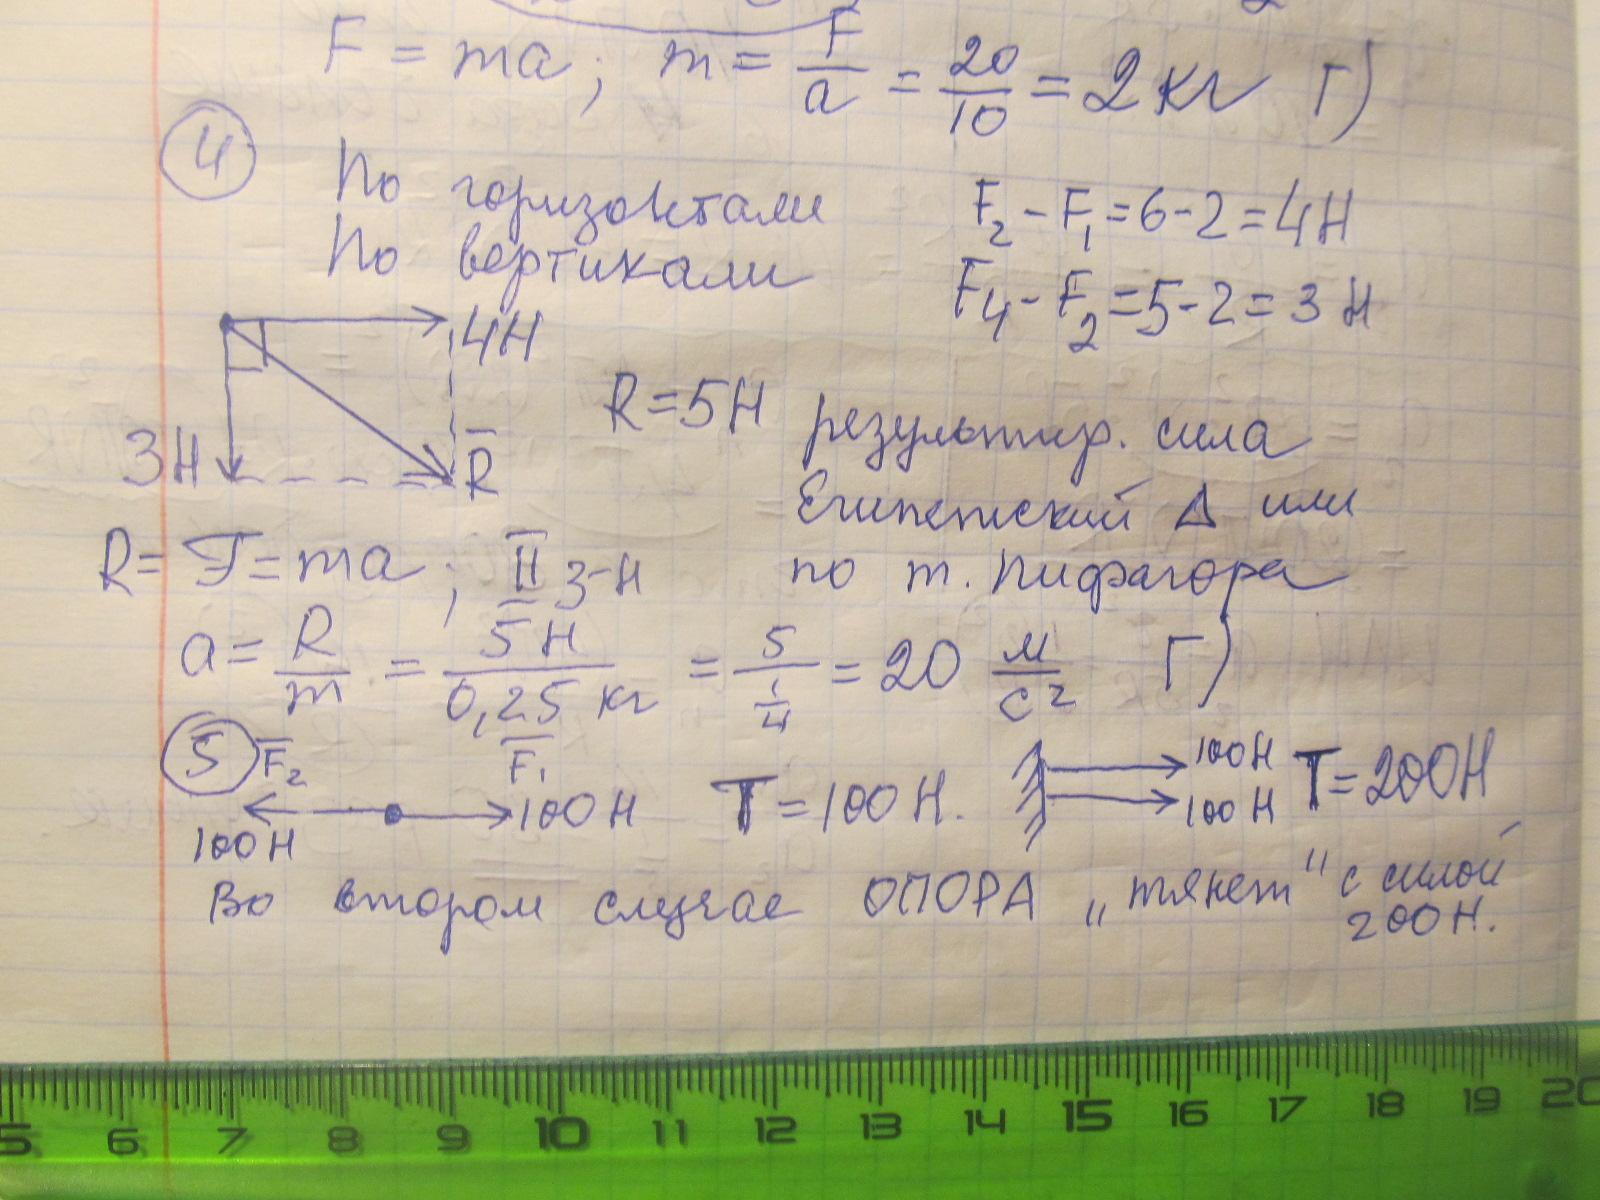 F = ma; m = F/a = 20/10 = 2 кг Г)
4
По горизонтали F₂ - F₁ = 6 - 2 = 4 Н
По вертикали F₄ - F₂ = 5 - 2 = 3 Н
4Н
3Н R̅
R = 5Н результир. сила
Египетский Δ или
по т. Пифагора
R = F = ma; II З-Н
a = R/m = 5 Н/0,25 кг = 5/(1/4) = 20 м/с² Г)
5 F̅₂ F̅₁
100Н 100Н T = 100 Н. 100Н 100Н T = 200Н
Во втором случае ОПОРА „тянет" с силой
200Н.
5 6 7 8 9 10 11 12 13 14 15 16 17 18 19 20